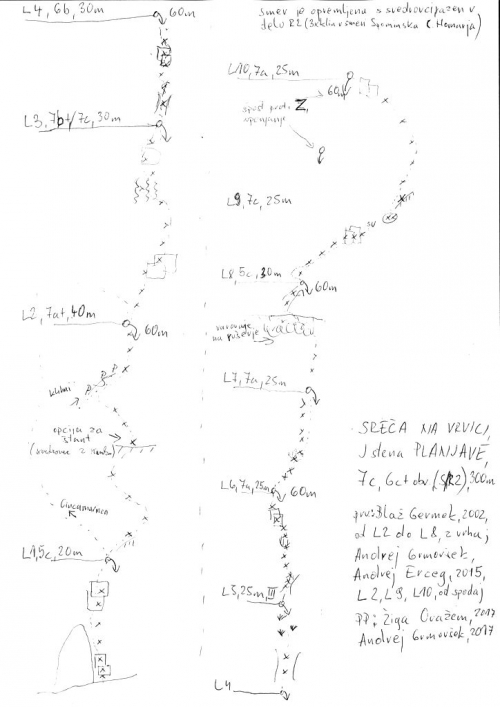 L4, 6b, 30m
60m
smer je opremljena s svedrovci, razen v
delu R2
L10, 7a, 25m
60m
spust pred. Z,
L3, 7b+/7c, 30m
L9, 7c, 25m
L8, 5c, 30m
60m
L2, 7a+, 40m
60m
varovanje
na ruševje
L7, 7a, 25m
opcija za
štant
SREČA NA VRVICI,
J stena PLANJAVE,
7c, 6c+ obv. (S/R2), 300m
L6, 7a, 25m
60m
prv: Blaž Germek, 2002,
od L2 do L8, z vrha;
Andrej Grmovšek,
Andrej Erceg, 2015,
L2, L9, L10, od spodaj
L1, 5c, 20m
L5, 25m, III
PP: Žiga Oražem, 2017
Andrej Grmovšek, 2017
L4